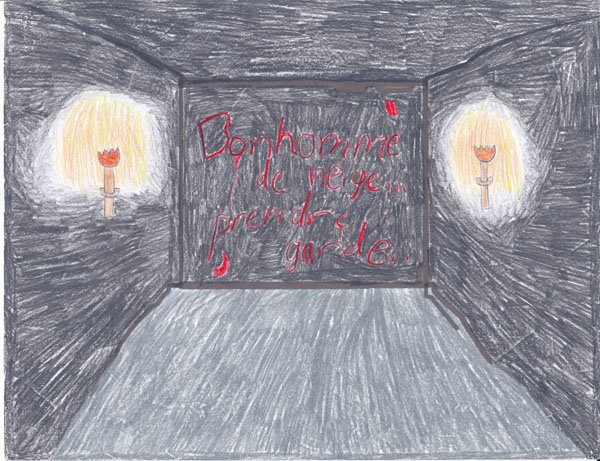 Bonhomme
de neige...
prendre
garde...